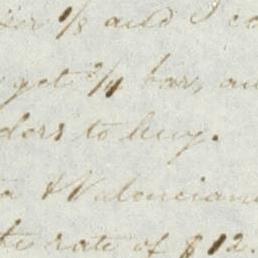 1/8 and I co
get 3/4 bars, au
ders to buy.
a Valencian
te rate of $12.